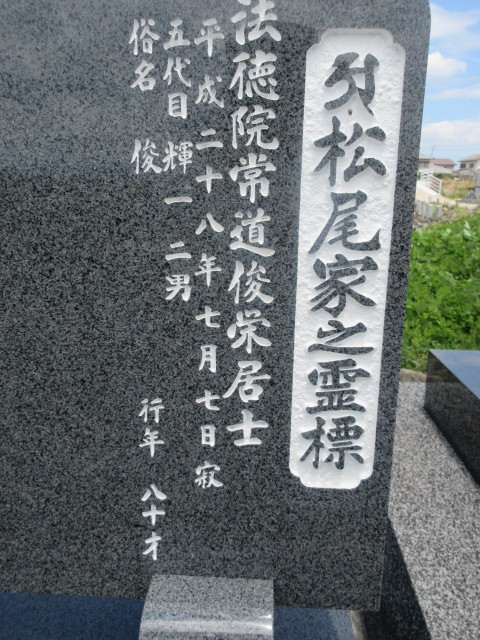 松尾家之霊標
法徳院常道俊栄居士
平成二十八年七月七日寂
五代目 輝一 二男
俗名 俊 行年 八十才